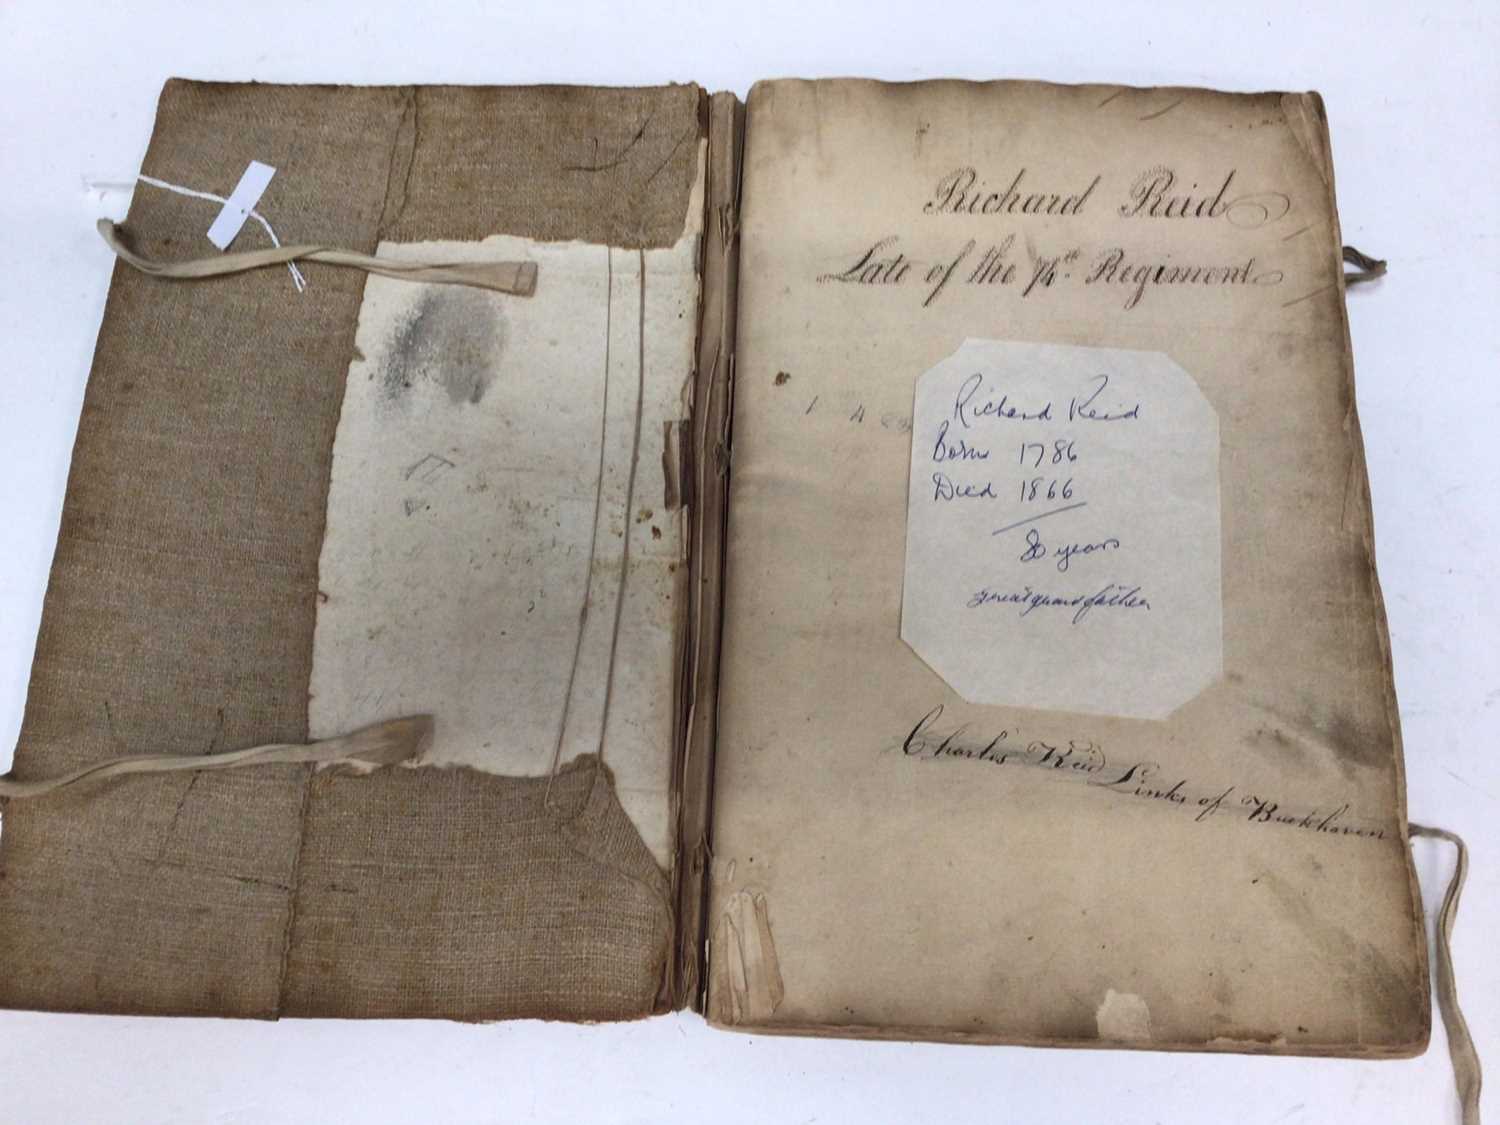 Richard Reid
Late of the 74th Regiment
1 4
Richard Reid
Born 1786
Died 1866
80 years
great grandfather
Charles Reid Links of Buckhaven